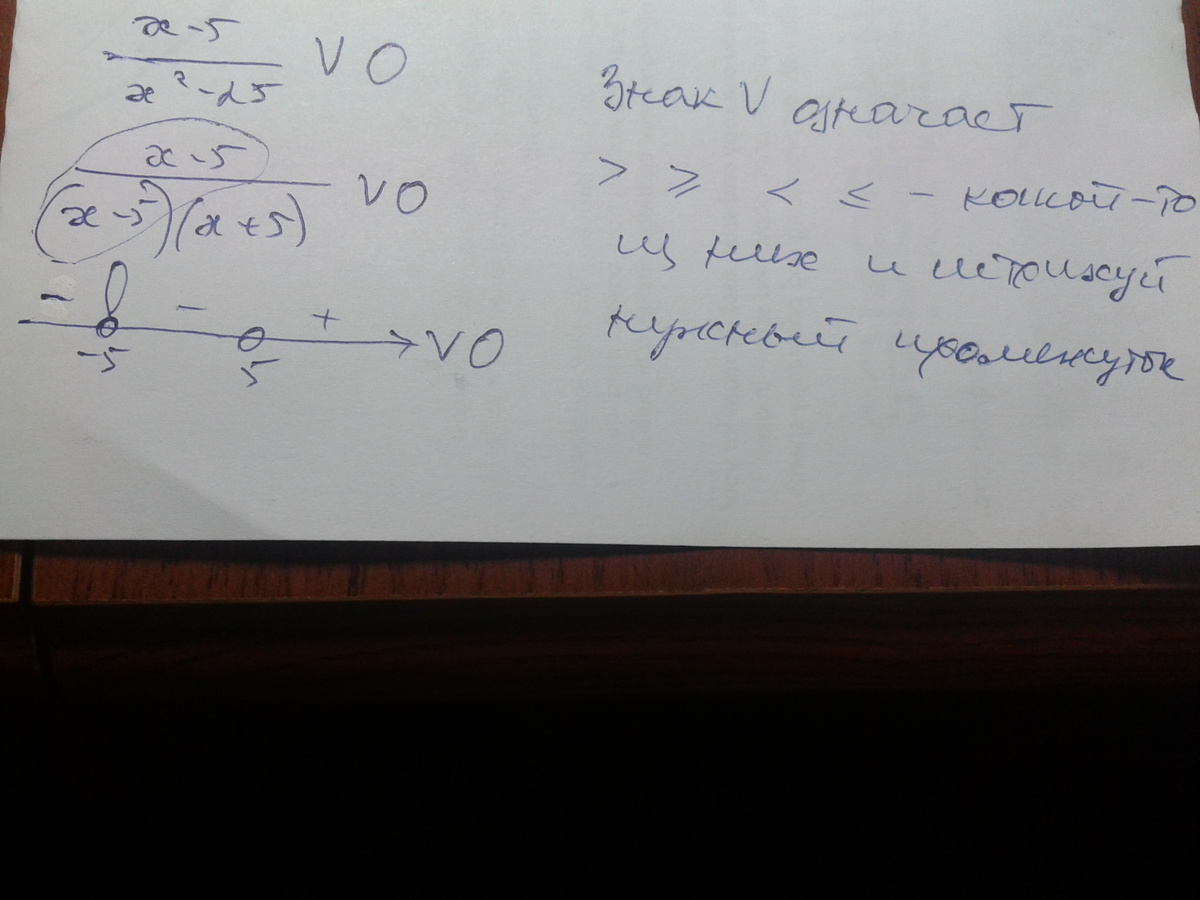 x-5
x²-25 V 0
x-5
(x-5)(x+5) V 0
- - +
-5 5 V 0
Знак V означает
> ≥ < ≤ - какой-то
из них и штрихуй
нужный промежуток